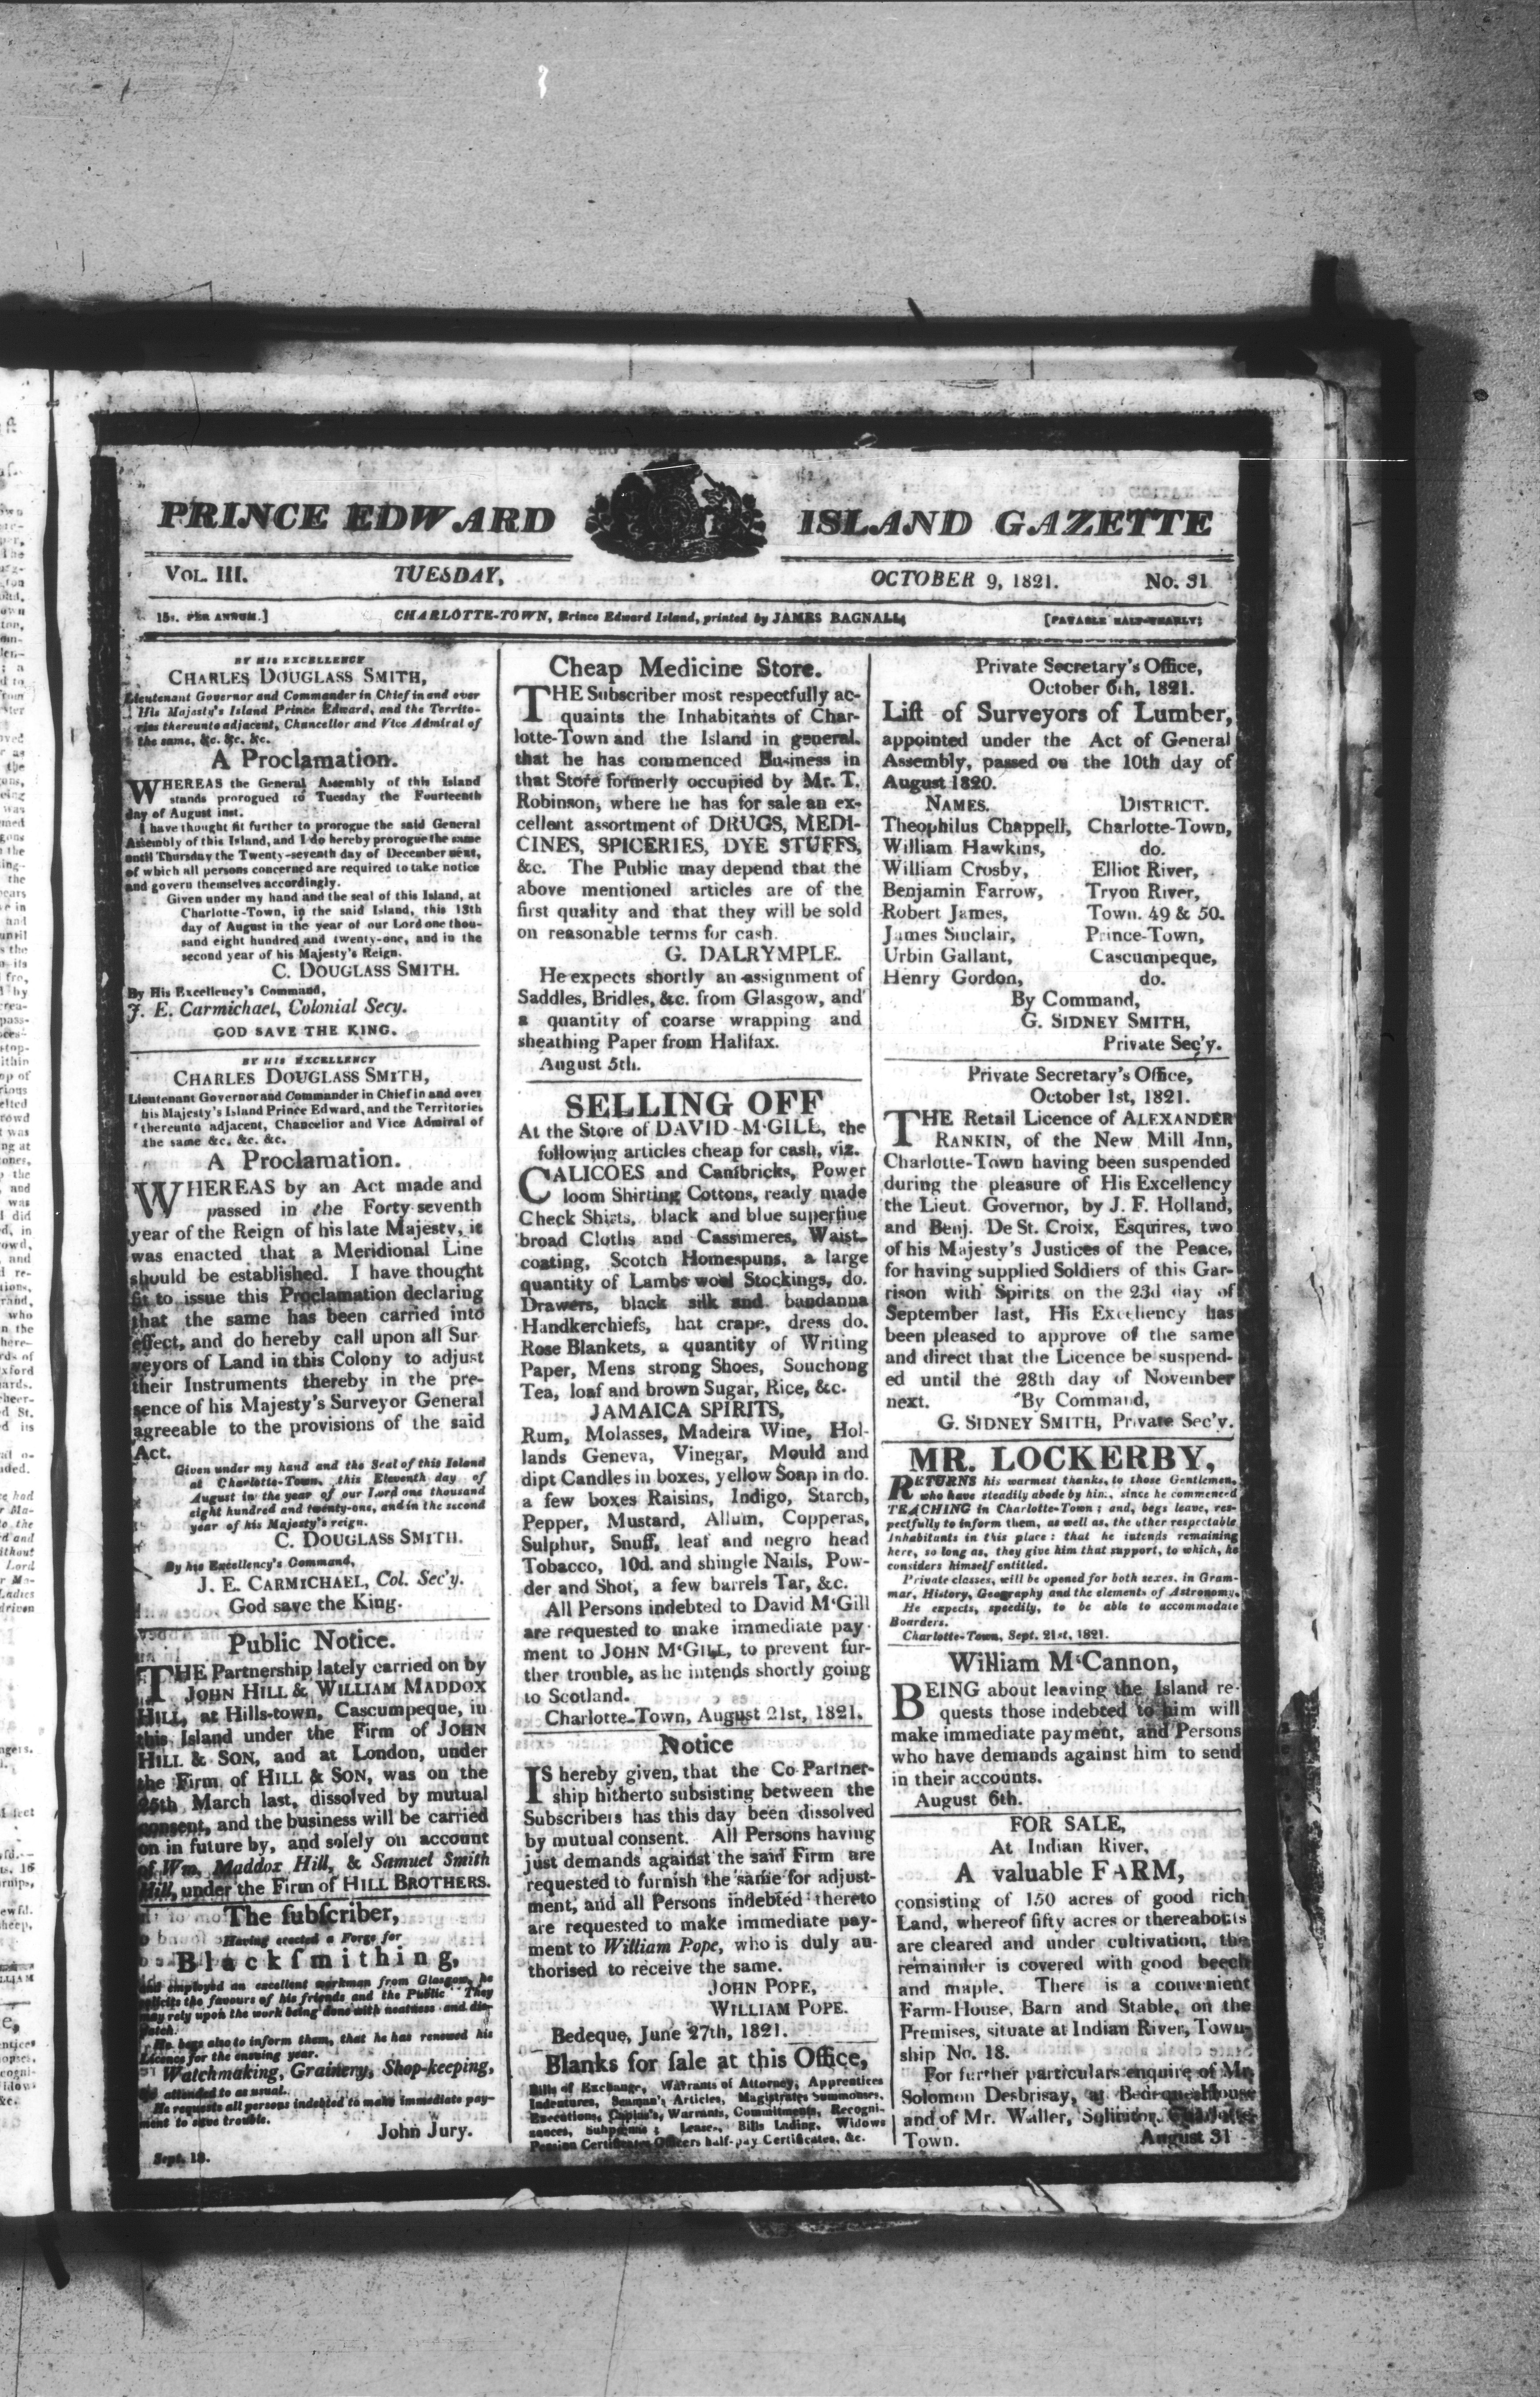 PRINCE EDWARD ISLAND GAZETTE
VOL. III. TUESDAY, OCTOBER 9, 1821. No. 31
15s. PER ANNUM.] CHARLOTTE-TOWN, Prince Edward Island, printed by JAMES BAGNALL; [PAYABLE HALF-YEARLY;
BY HIS EXCELLENCY
CHARLES DOUGLASS SMITH,
Lieutenant Governor and Commander in Chief in and over
His Majesty's Island Prince Edward, and the Territo-
ries thereunto adjacent, Chancellor and Vice Admiral of
the same, &c. &c. &c.
A Proclamation.
WHEREAS the General Assembly of this Island
stands prorogued to Tuesday the Fourteenth
day of August inst.
I have thought fit further to prorogue the said General
Assembly of this Island, and I do hereby prorogue the same
until Thursday the Twenty-seventh day of December next,
of which all persons concerned are required to take notice
and govern themselves accordingly.
Given under my hand and the seal of this Island, at
Charlotte-Town, in the said Island, this 13th
day of August in the year of our Lord one thou-
sand eight hundred and twenty-one, and in the
second year of his Majesty's Reign.
C. DOUGLASS SMITH.
By His Excellency's Command,
J. E. Carmichael, Colonial Secy.
GOD SAVE THE KING.
BY HIS EXCELLENCY
CHARLES DOUGLASS SMITH,
Lieutenant Governor and Commander in Chief in and over
his Majesty's Island Prince Edward, and the Territories
thereunto adjacent, Chancellor and Vice Admiral of
the same &c. &c. &c.
A Proclamation.
WHEREAS by an Act made and
passed in the Forty seventh
year of the Reign of his late Majesty, it
was enacted that a Meridional Line
should be established. I have thought
fit to issue this Proclamation declaring
that the same has been carried into
effect, and do hereby call upon all Sur
veyors of Land in this Colony to adjust
their Instruments thereby in the pre-
sence of his Majesty's Surveyor General
agreeable to the provisions of the said
Act.
Given under my hand and the Seal of this Island
at Charlotte-Town, this Eleventh day of
August in the year of our Lord one thousand
eight hundred and twenty-one, and in the second
year of his Majesty's reign.
C. DOUGLASS SMITH.
By his Excellency's Command,
J. E. CARMICHAEL, Col. Sec'y.
God save the King.
Public Notice.
THE Partnership lately carried on by
JOHN HILL & WILLIAM MADDOX
HILL, at Hills-town, Cascumpeque, in
this Island under the Firm of JOHN
HILL & SON, and at London, under
the Firm of HILL & SON, was on the
25th March last, dissolved by mutual
consent, and the business will be carried
on in future by, and solely on account
of Wm. Maddox Hill, & Samuel Smith
Hill, under the Firm of HILL BROTHERS.
The subſcriber,
Having erected a Forge for
Blackſmithing,
and employed an excellent workman from Glasgow, he
solicits the favours of his friends and the Public They
may rely upon the work being done with neatness and dis-
patch.
He begs also to inform them, that he has renewed his
Licence for the ensuing year.
Watchmaking, Grainery, Shop-keeping,
attended to as usual.
He requests all persons indebted to make immediate pay-
ment to save trouble.
John Jury.
Sept. 18.
Cheap Medicine Store.
THE Subscriber most respectfully ac-
quaints the Inhabitants of Char-
lotte-Town and the Island in general.
that he has commenced Business in
that Store formerly occupied by Mr. T.
Robinson, where he has for sale an ex-
cellent assortment of DRUGS, MEDI-
CINES, SPICERIES, DYE STUFFS,
&c. The Public may depend that the
above mentioned articles are of the
first quality and that they will be sold
on reasonable terms for cash.
G. DALRYMPLE.
He expects shortly an assignment of
Saddles, Bridles, &c. from Glasgow, and
a quantity of coarse wrapping and
sheathing Paper from Halifax.
August 5th.
SELLING OFF
At the Store of DAVID M'GILL, the
following articles cheap for cash, viz.
CALICOES and Cambricks, Power
loom Shirting Cottons, ready made
Check Shirts, black and blue superfine
broad Cloths and Cassimeres, Waist-
coating, Scotch Homespuns, a large
quantity of Lambs-wool Stockings, do.
Drawers, black silk and bandanna
Handkerchiefs, hat crape, dress do.
Rose Blankets, a quantity of Writing
Paper, Mens strong Shoes, Souchong
Tea, loaf and brown Sugar, Rice, &c.
JAMAICA SPIRITS,
Rum, Molasses, Madeira Wine, Hol-
lands Geneva, Vinegar, Mould and
dipt Candles in boxes, yellow Soap in do.
a few boxes Raisins, Indigo, Starch,
Pepper, Mustard, Allum, Copperas,
Sulphur, Snuff, leaf and negro head
Tobacco, 10d. and shingle Nails, Pow-
der and Shot, a few barrels Tar, &c.
All Persons indebted to David M'Gill
are requested to make immediate pay-
ment to JOHN M'GILL, to prevent fur-
ther trouble, as he intends shortly going
to Scotland.
Charlotte-Town, August 21st, 1821.
Notice
IS hereby given, that the Co-Partner-
ship hitherto subsisting between the
Subscribers has this day been dissolved
by mutual consent. All Persons having
just demands against the said Firm are
requested to furnish the same for adjust-
ment, and all Persons indebted thereto
are requested to make immediate pay-
ment to William Pope, who is duly au-
thorised to receive the same.
JOHN POPE,
WILLIAM POPE.
Bedeque, June 27th, 1821.
Blanks for ſale at this Office,
Bills of Exchange, Warrants of Attorney, Apprentices
Indentures, Seaman's Articles, Magistrates Summonses,
Executions, Capias's, Warrants, Commitments, Recogni-
sances, Subpœnas; Leases, Bills Lading, Widows
Pension Certificates Officers half-pay Certificates, &c.
Private Secretary's Office,
October 6th, 1821.
Liſt of Surveyors of Lumber,
appointed under the Act of General
Assembly, passed on the 10th day of
August 1820.
NAMES. DISTRICT.
Theophilus Chappell, Charlotte-Town,
William Hawkins, do.
William Crosby, Elliot River,
Benjamin Farrow, Tryon River,
Robert James, Town. 49 & 50.
James Sinclair, Prince-Town,
Urbin Gallant, Cascumpeque,
Henry Gordon, do.
By Command,
G. SIDNEY SMITH,
Private Sec'y.
Private Secretary's Office,
October 1st, 1821.
THE Retail Licence of ALEXANDER
RANKIN, of the New Mill Inn,
Charlotte-Town having been suspended
during the pleasure of His Excellency
the Lieut. Governor, by J. F. Holland,
and Benj. De St. Croix, Esquires, two
of his Majesty's Justices of the Peace,
for having supplied Soldiers of this Gar-
rison with Spirits on the 23d day of
September last, His Excellency has
been pleased to approve of the same
and direct that the Licence be suspend-
ed until the 28th day of November
next. By Command,
G. SIDNEY SMITH, Private Sec'y.
MR. LOCKERBY,
RETURNS his warmest thanks, to those Gentlemen,
who have steadily abode by him, since he commenced
TEACHING in Charlotte-Town; and, begs leave, res-
pectfully to inform them, as well as, the other respectable
Inhabitants in this place: that he intends remaining
here, so long as, they give him that support, to which, he
considers himself entitled.
Private classes, will be opened for both sexes, in Gram-
mar, History, Geography and the elements of Astronomy.
He expects, speedily, to be able to accommodate
Boarders.
Charlotte-Town, Sept. 21st, 1821.
William M'Cannon,
BEING about leaving the Island re-
quests those indebted to him will
make immediate payment, and Persons
who have demands against him to send
in their accounts.
August 6th.
FOR SALE,
At Indian River,
A valuable FARM,
consisting of 150 acres of good rich
Land, whereof fifty acres or thereabouts
are cleared and under cultivation, the
remainder is covered with good beech
and maple. There is a convenient
Farm-House, Barn and Stable, on the
Premises, situate at Indian River, Town-
ship No. 18.
For further particulars enquire of Mr.
Solomon Desbrisay, at Bedeque House
and of Mr. Waller, Solicitor, Charlotte
Town. August 31